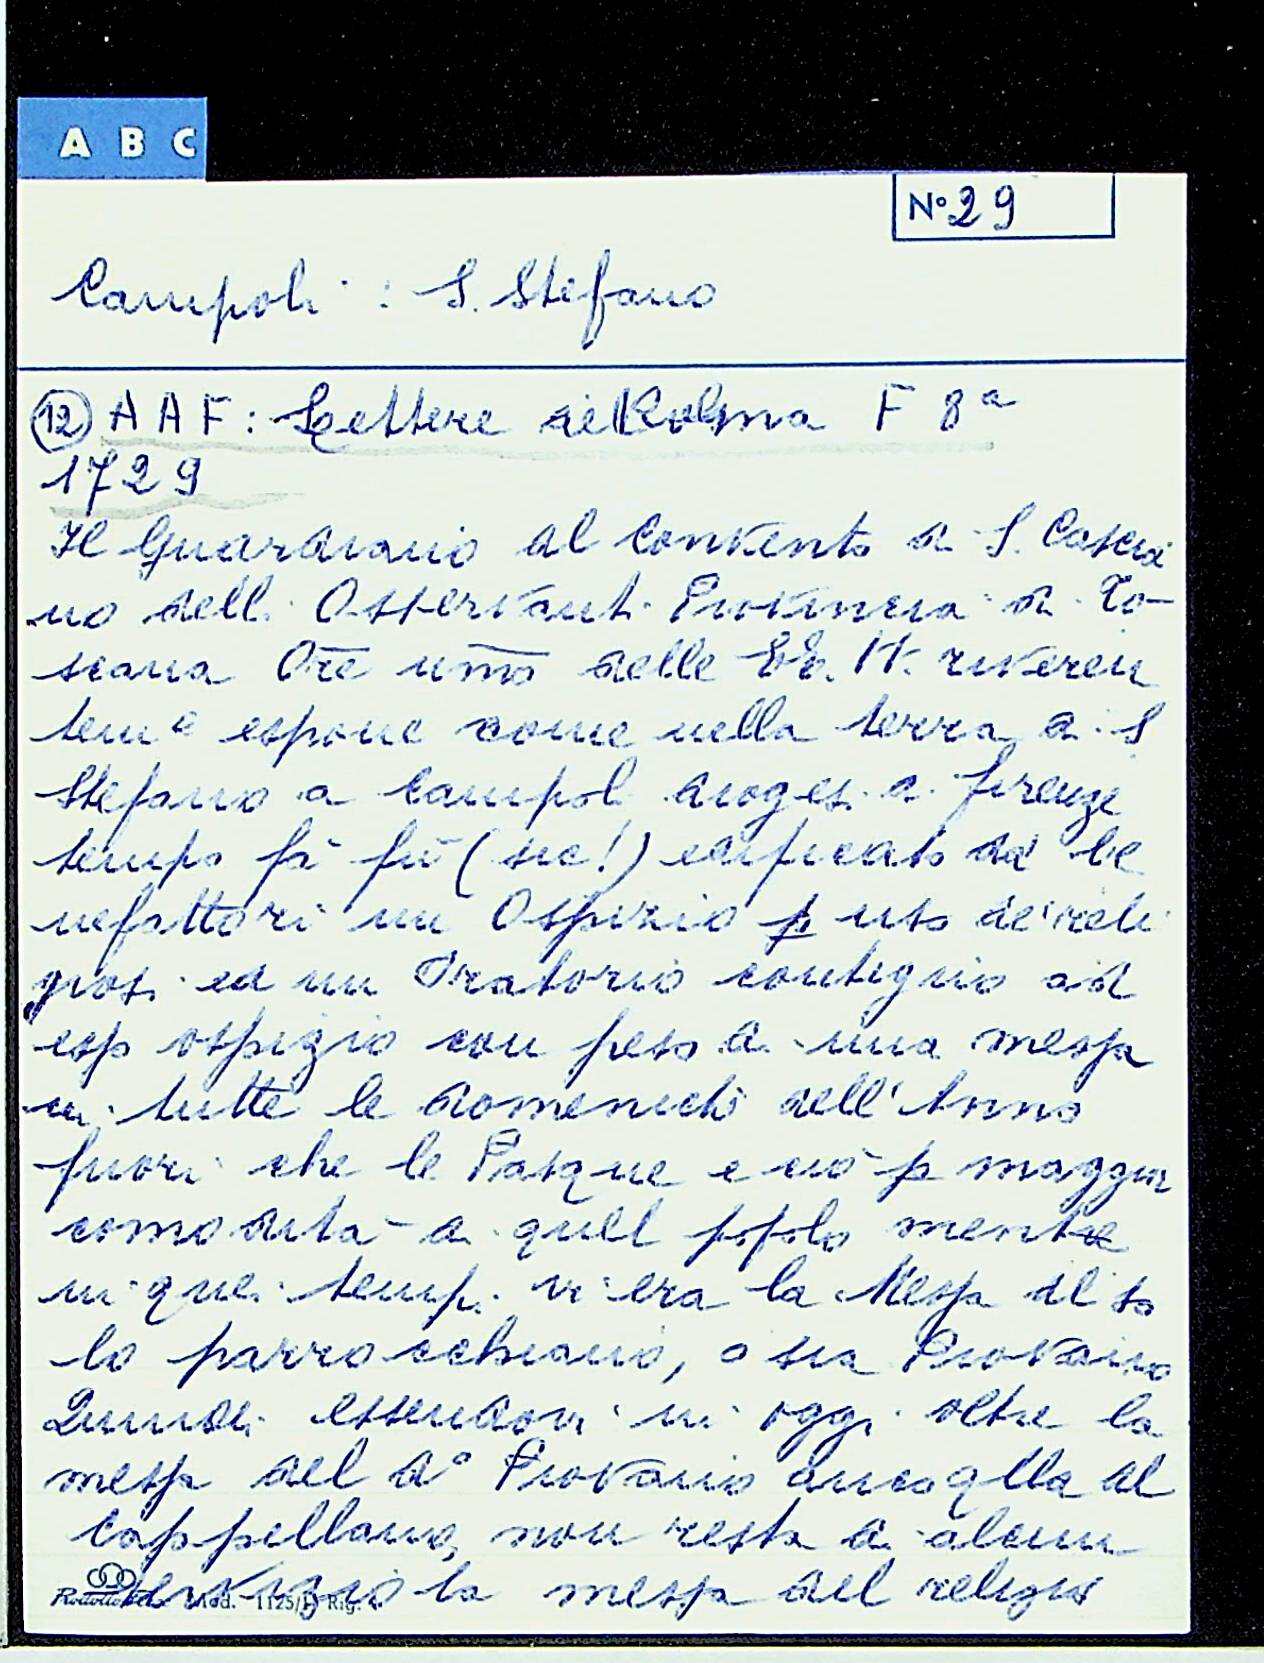 A B C
N° 29
Campoli : S. Stefano
12 A A F: Lettere di Roma F 8ª
1729
Il Guardiano del Convento di S. Cascia
no dell. Osservant. Provincia di To-
scana Ore umo delle EE. VV. riveren
temᵉ espone come nella terra di S
Stefano a Campoli dioges. di Firenze
tempo fà fù (sic!) edificato da' be
nefattori un Ospizio p uso de' reli
giosi ed un Oratorio contiguo ad
esso ospizio con peso di una messa
in tutte le domeniche dell'Anno
fuori che le Pasque e ciò p maggior
comodità di quel popolo mentre
in quei tempi vi era la Messa del so
lo parrocchiano, o sia Piovano
Quindi essendovi in oggi oltre la
messa del dº Piovano anco qlla del
Cappellano, non resta di alcun
servizio la messa del religios
Mod. 1125/1 Rig.